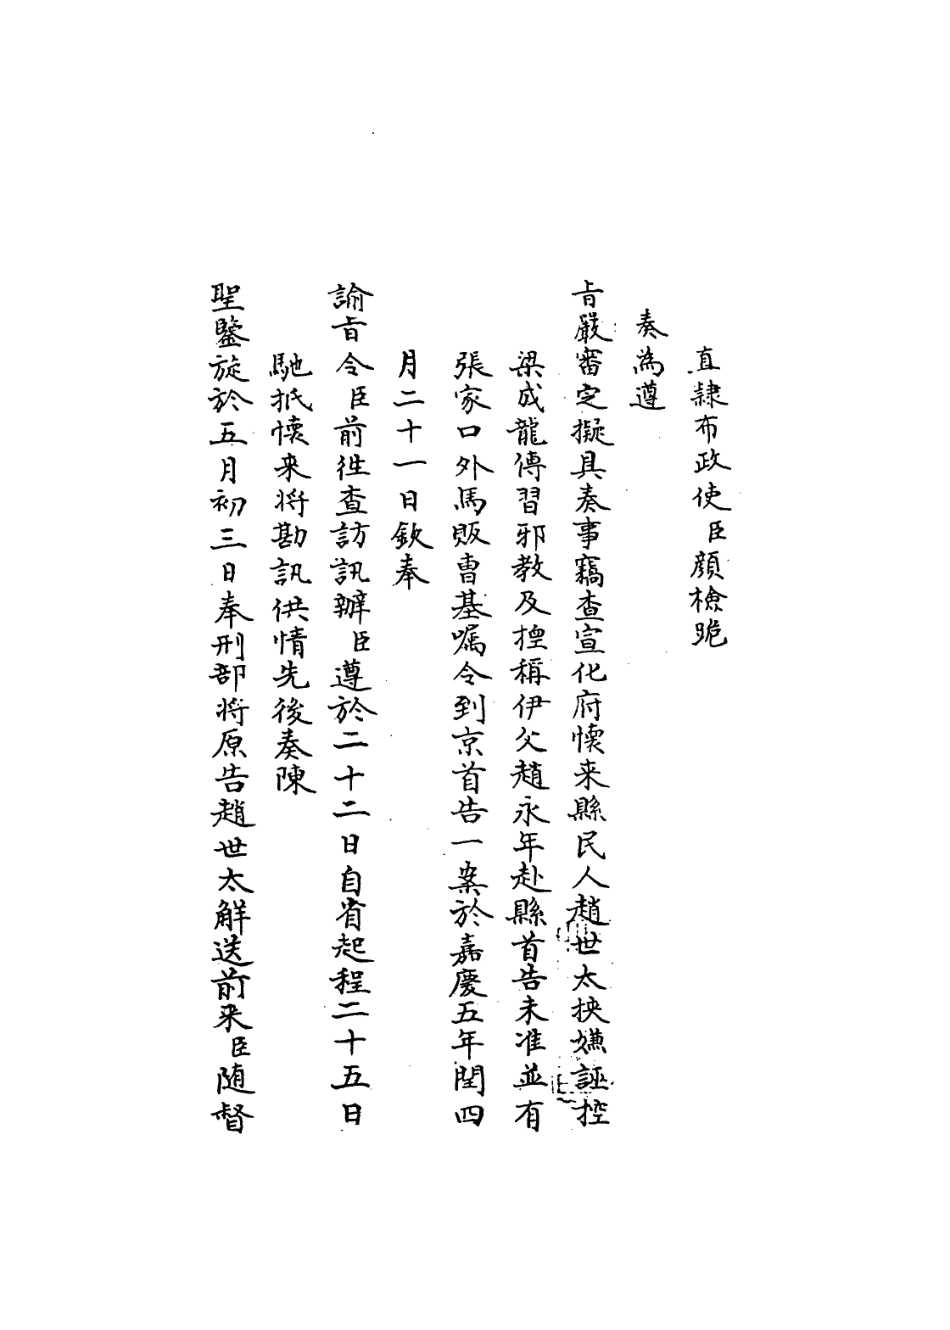 直隸布政使臣顏檢跪
奏為遵
旨嚴審定擬具奏事竊查宣化府懷来縣民人趙世太挾嫌誣控
梁成龍傳習邪教及揑稱伊父趙永年赴縣首告未准並有
張家口外馬販曹基囑令到京首告一案於嘉慶五年閏四
月二十一日欽奉
諭旨令臣前徃查訪訊辦臣遵於二十二日自省起程二十五日
馳抵懷来將勘訊供情先後奏陳
聖鑒旋於五月初三日奉刑部將原告趙世太解送前来臣随督